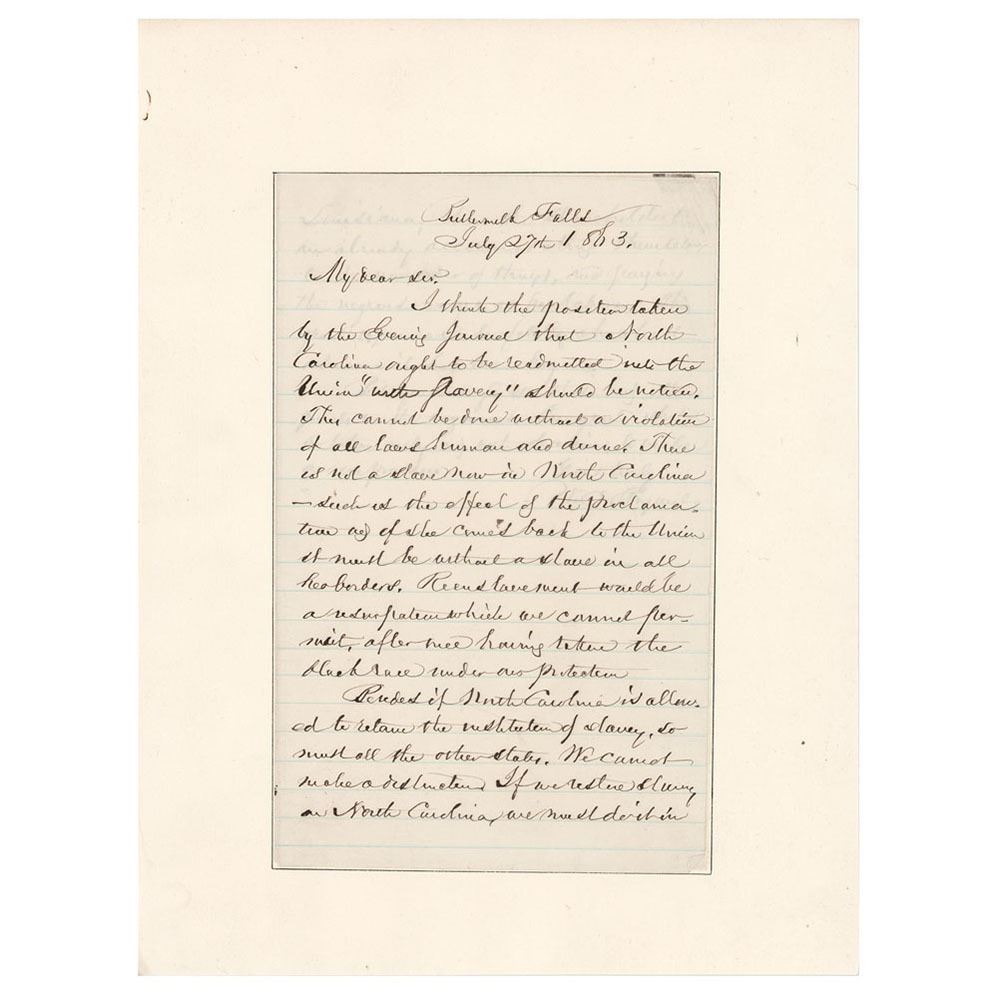 Buttermilk Falls
July 27th 1863.
My dear sir.
I think the position taken
by the Evening Journal that North
Carolina ought to be readmitted into the
Union "with Slavery" should be noticed.
This cannot be done without a violation
of all laws human and divine. There
is not a slave now in North Carolina
— such is the effect of the proclama-
tion and if she comes back to the Union
it must be without a slave in all
her borders. Reenslavement would be
a usurpation which we cannot per-
mit, after once having taken the
black race under our protection
Besides if North Carolina is allow-
ed to retain the institution of slavery, so
must all the other states. We cannot
make a distinction. If we restore slavery
in North Carolina, we must do it in
Louisiana
in already
of things, and
the negroes